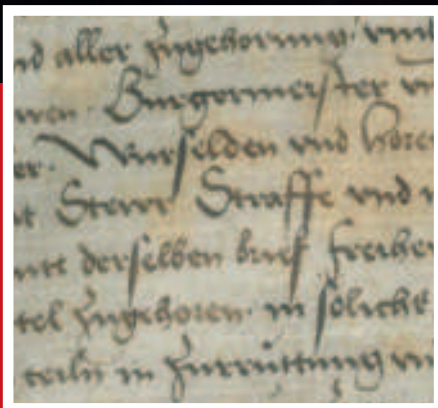 nd aller zugehorung vnd
ren. Burgermeister vn
er. Wurselden vnd hore
it Stewr Straffe vnd
derselben brief freihe
tel zugehoren. in soliche
teiln in zurruttung